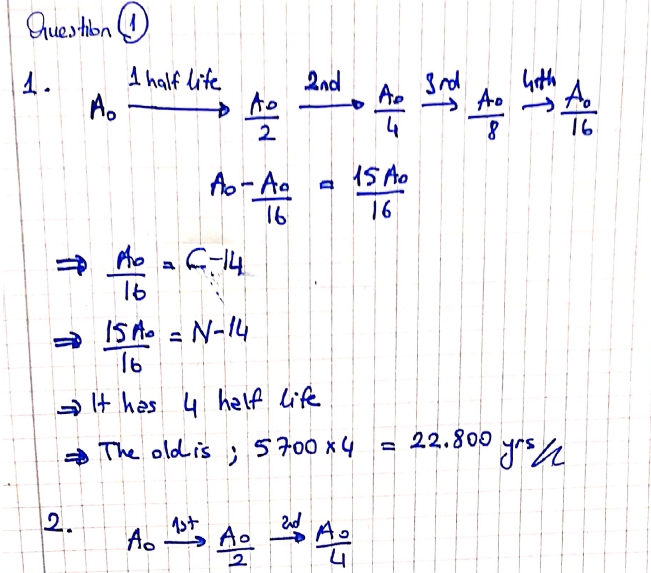 Question ①
1. A₀ 1 half life → A₀/2 2nd → A₀/4 3rd → A₀/8 4th → A₀/16
A₀ - A₀/16 = 15A₀/16
⇒ A₀/16 = C-14
⇒ 15A₀/16 = N-14
⇒ It has 4 half life
⇒ The old is ; 5700 x 4 = 22.800 yrs //
2. A₀ 1st → A₀/2 2d → A₀/4